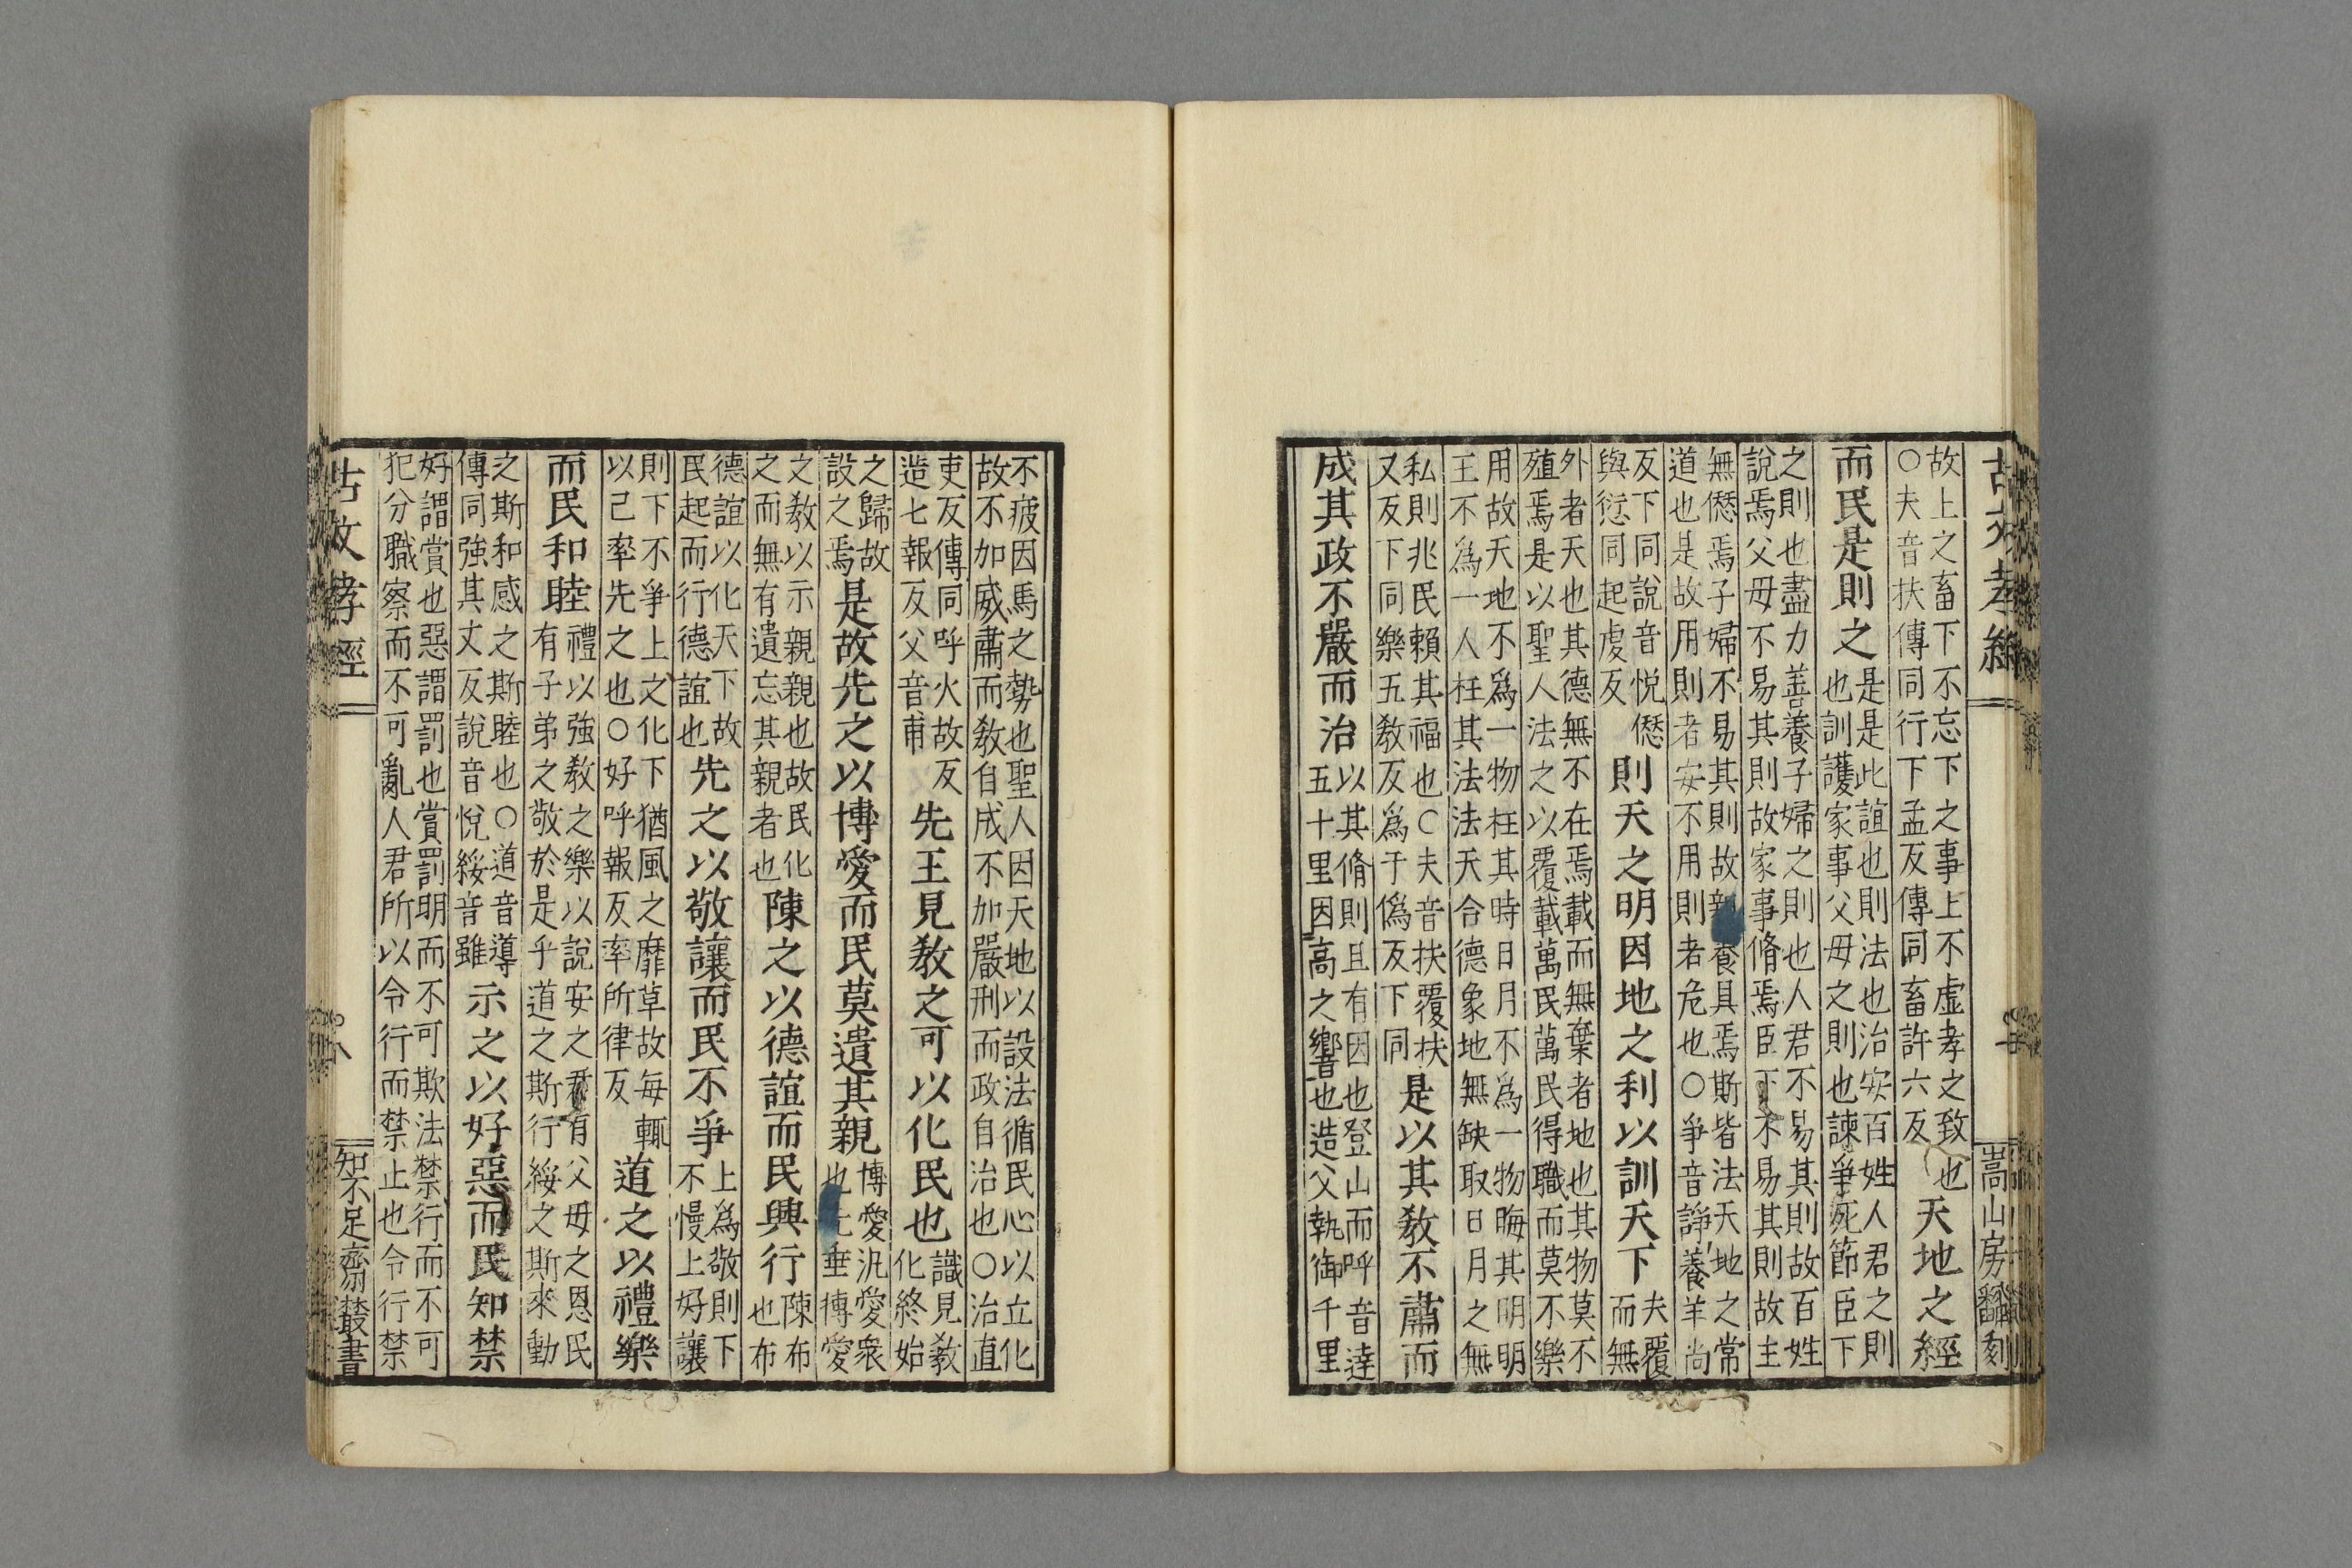 古文孝經
嵩山房翻刻
故上之畜下不忘下之事上不虛孝之致也
○夫音扶傳同行下孟反傳同畜許六反
天地之經
而民是則之
是是此誼也則法也治安百姓人君之則
也訓護家事父母之則也諫爭死節臣下
之則也盡力善養子婦之則也人君不易其則故百姓
說焉父母不易其則故家事脩焉臣下不易其則故主
無僁焉子婦不易其則故養具焉斯皆法天地之常
道也是故用則者安不用則者危也○爭音諍養羊尚
反下同說音悅僁
與愆同起虔反
則天之明因地之利以訓天下
夫覆
而無
外者天也其德無不在焉載而無棄者地也其物莫不
殖焉是以聖人法之以覆載萬民萬民得職而莫不樂
用故天地不爲一物枉其時日月不爲一物晦其明明
王不爲一人枉其法法天合德象地無缺取日月之無
私則兆民賴其福也○夫音扶覆扶
又反下同樂五教反爲于僞反下同
是以其敎不肅而
成其政不嚴而治
以其脩則且有因也登山而呼音達
五十里因高之響也造父執御千里
不疲因馬之勢也聖人因天地以設法循民心以立化
故不加威肅而敎自成不加嚴刑而政自治也○治直
吏反傳同呼火故反
造七報反父音甫
先王見敎之可以化民也
識見敎
化終始
之歸故
設之焉
是故先之以博愛而民莫遺其親
博愛汎愛衆
也垂博愛
文敎以示親親也故民化
之而無有遺忘其親者也
陳之以德誼而民興行
陳布
也布
德誼以化天下故
民起而行德誼也
先之以敬讓而民不爭
上爲敬則下
不慢上好讓
則下不爭上之化下猶風之靡草故每輒
以己率先之也○好呼報反率所律反
道之以禮樂
而民和睦
禮以強敎之樂以說安之君有父母之恩民
有子弟之敬於是乎道之斯行綏之斯來動
之斯和感之斯睦也○道音導
傳同強其丈反說音悅綏音雖
示之以好惡而民知禁
好謂賞也惡謂罰也賞罰明而不可欺法禁行而不可
犯分職察而不可亂人君所以令行而禁止也令行禁
古文孝經
八
知不足齋叢書